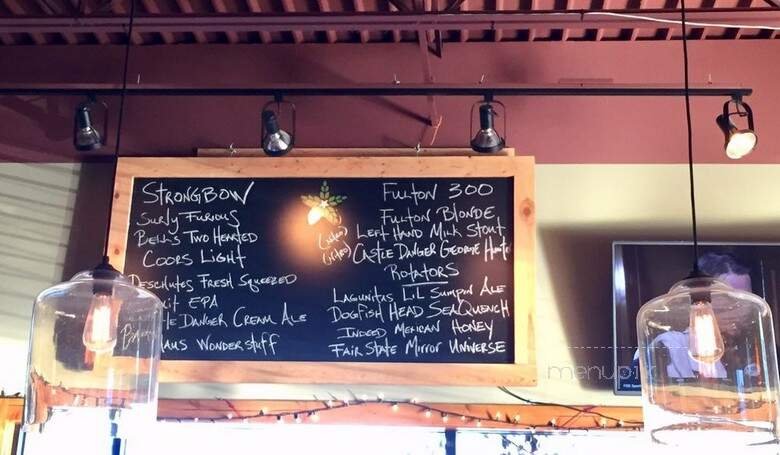 STRONGBOW
SURLY FURIOUS
BELLS TWO HEARTED
COORS LIGHT
DESCHUTES FRESH SQUEEZED
EPA
DANGER CREAM ALE
WONDERSTUFF
FULTON 300
FULTON BLONDE
(nitro) LEFT HAND MILK STOUT
(nitro) CASTLE DANGER GEORGE HUNTER
ROTATORS
LAGUNITAS LIL SUMPIN ALE
DOGFISH HEAD SEAQUENCH
INDEED MEXICAN HONEY
FAIR STATE MIRROR UNIVERSE
menupix